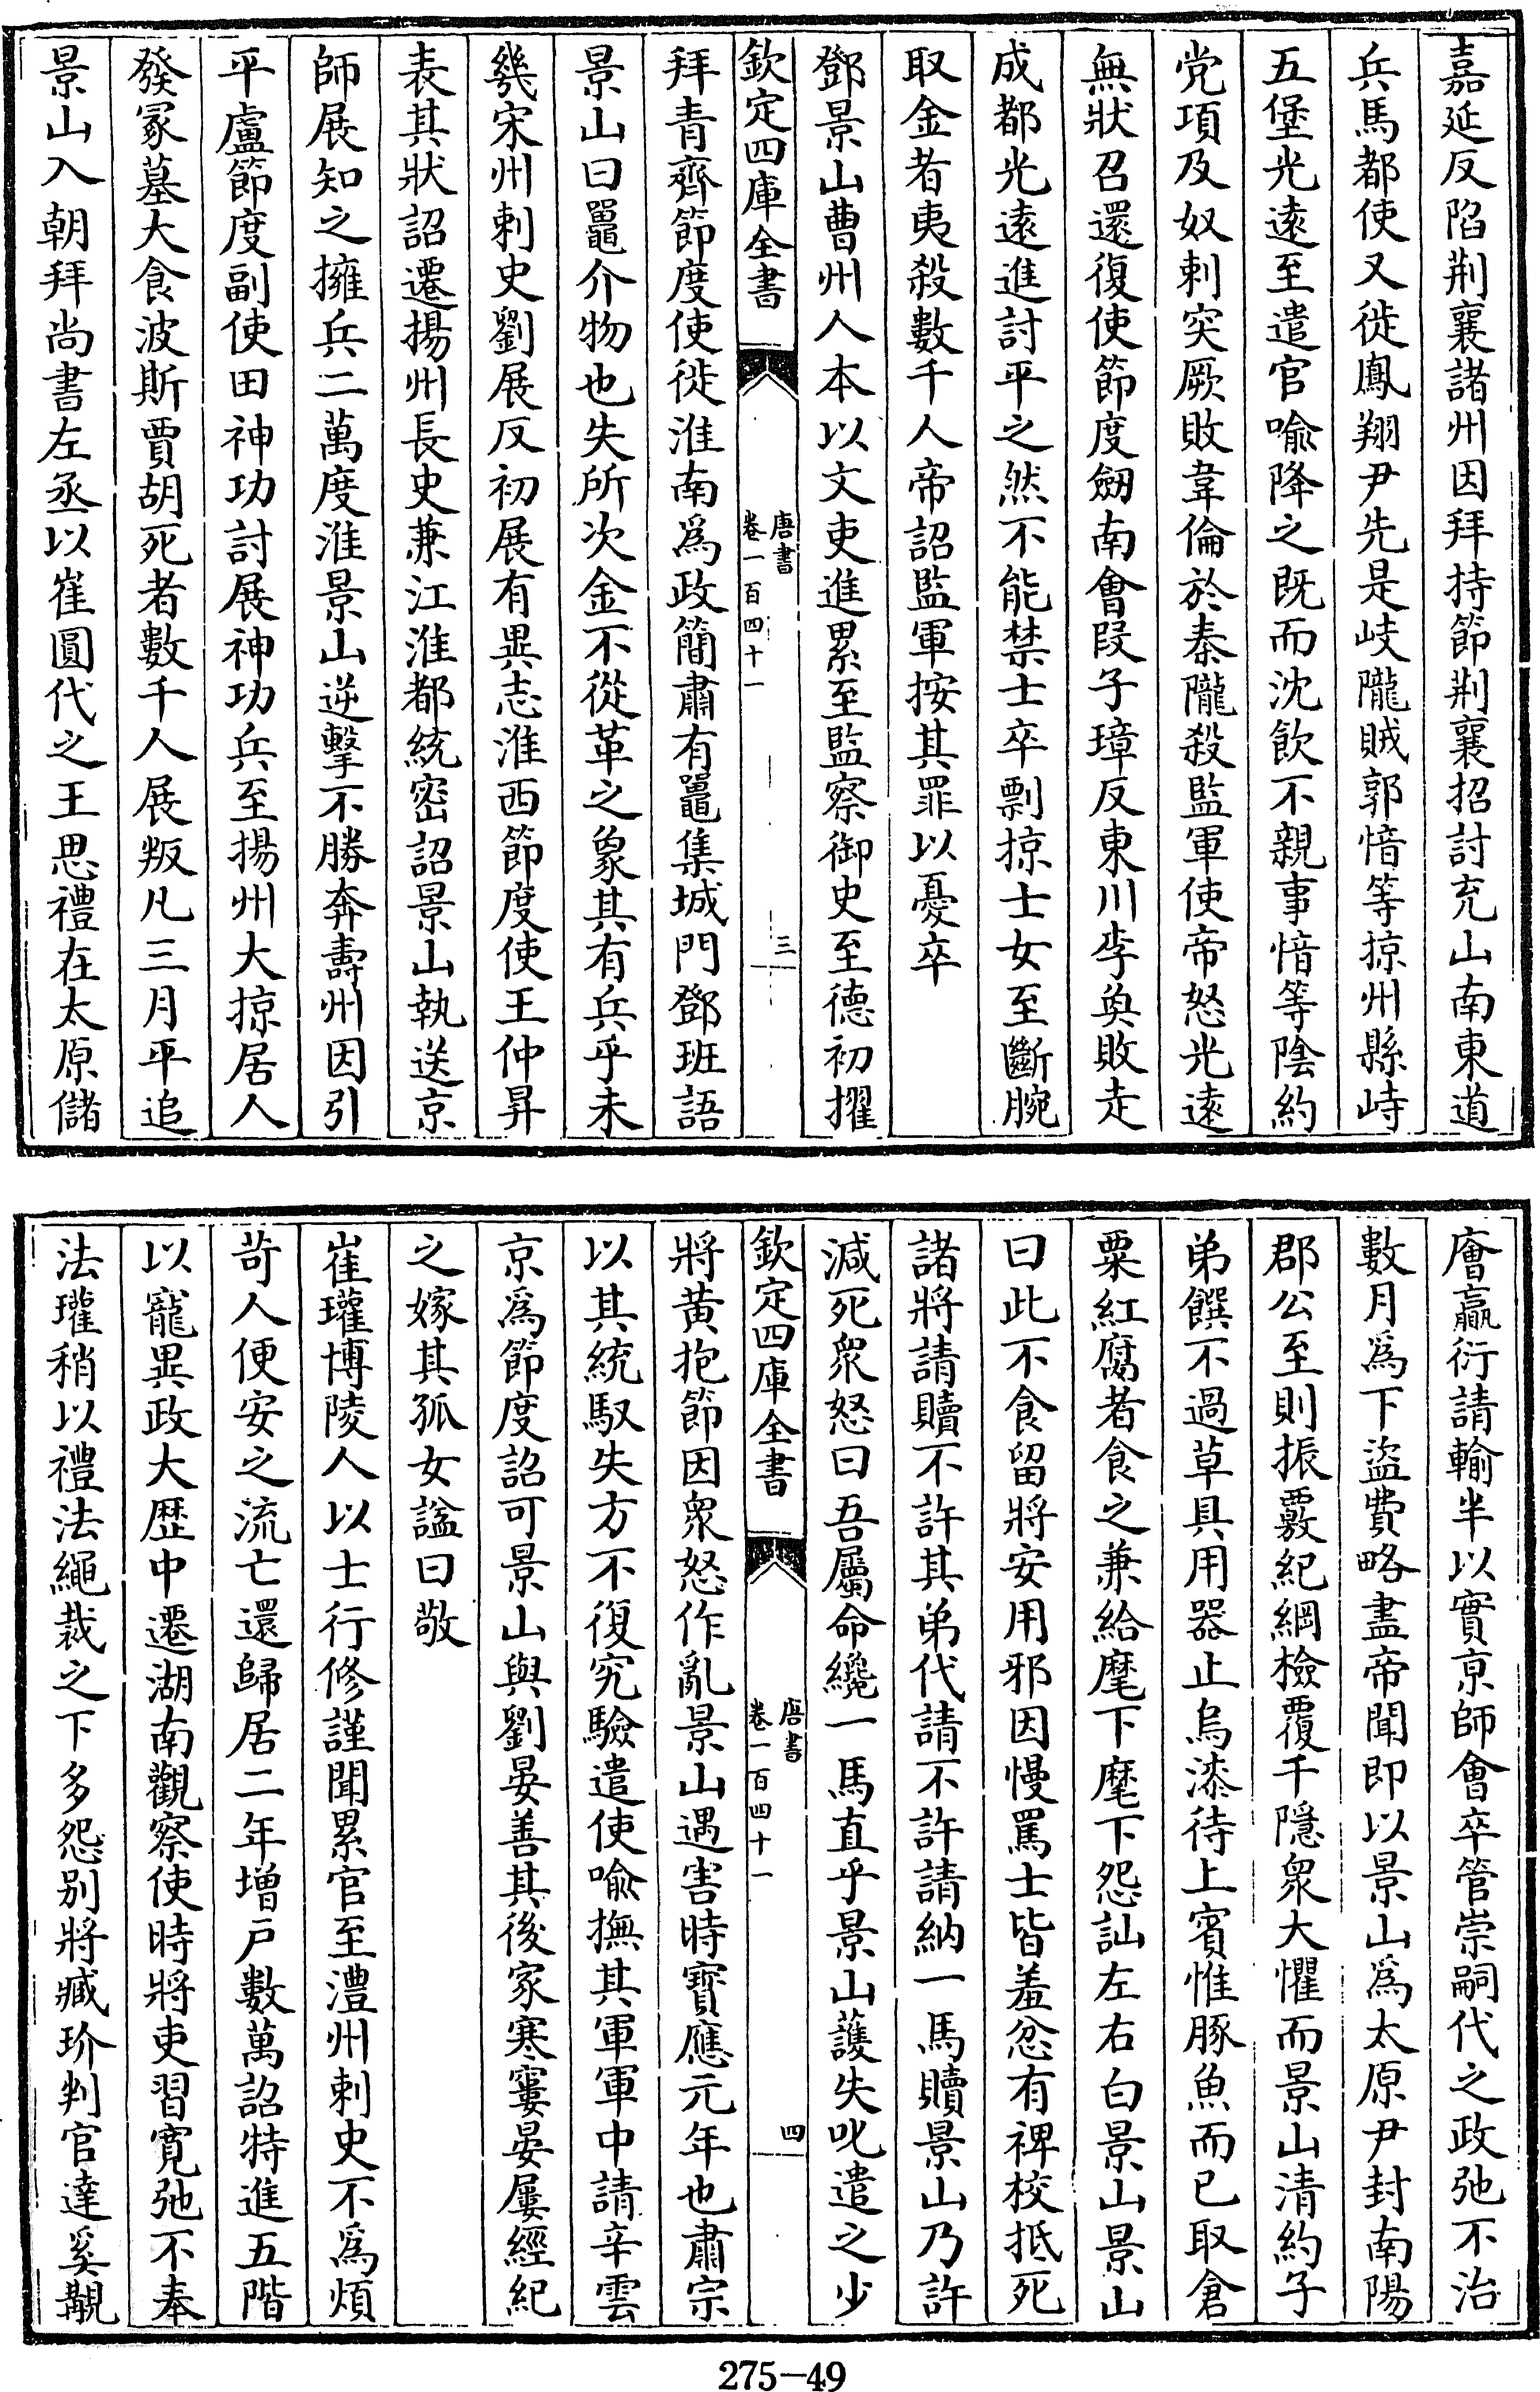 嘉延反陷荆襄諸州因拜持節荆襄招討充山南東道
兵馬都使又徙鳳翔尹先是岐隴賊郭愔等掠州縣峙
五堡光遠至遣官喻降之既而沈飲不親事愔等陰約
党項及奴剌突厥敗韋倫於秦隴殺監軍使帝怒光遠
無狀召還復使節度劒南會段子璋反東川李奐敗走
成都光遠進討平之然不能禁士卒剽掠士女至斷腕
取金者夷殺數千人帝詔監軍按其罪以憂卒
鄧景山曹州人本以文吏進累至監察御史至德初擢
欽定四庫全書
唐書
卷一百四十一
三
拜青齊節度使徙淮南為政簡肅有鼉集城門鄧班語
景山曰鼉介物也失所次金不從革之象其有兵乎未
幾宋州刺史劉展反初展有異志淮西節度使王仲昇
表其狀詔遷揚州長史兼江淮都統密詔景山執送京
師展知之擁兵二萬度淮景山逆擊不勝奔壽州因引
平盧節度副使田神功討展神功兵至揚州大掠居人
發冢墓大食波斯賈胡死者數千人展叛凡三月平追
景山入朝拜尚書左丞以崔圓代之王思禮在太原儲
廥贏衍請輸半以實京師會卒管崇嗣代之政弛不治
數月為下盜費略盡帝聞即以景山為太原尹封南陽
郡公至則振覈紀綱檢覆千隱衆大懼而景山清約子
弟饌不過草具用器止烏漆待上賓惟豚魚而已取倉
粟紅腐者食之兼給麾下麾下怨訕左右白景山景山
曰此不食留將安用邪因慢罵士皆羞忿有裨校抵死
諸將請贖不許其弟代請不許請納一馬贖景山乃許
減死衆怒曰吾屬命纔一馬直乎景山護失叱遣之少
欽定四庫全書
唐書
卷一百四十一
四
將黃抱節因衆怒作亂景山遇害時寶應元年也肅宗
以其統馭失方不復究驗遣使喻撫其軍軍中請辛雲
京為節度詔可景山與劉晏善其後家寒窶晏屢經紀
之嫁其孤女諡曰敬
崔瓘博陵人以士行修謹聞累官至澧州刺史不為煩
苛人便安之流亡還歸居二年增戶數萬詔特進五階
以寵異政大歷中遷湖南觀察使時將吏習寬弛不奉
法瓘稍以禮法繩裁之下多怨別將臧玠判官達奚覯
275-49